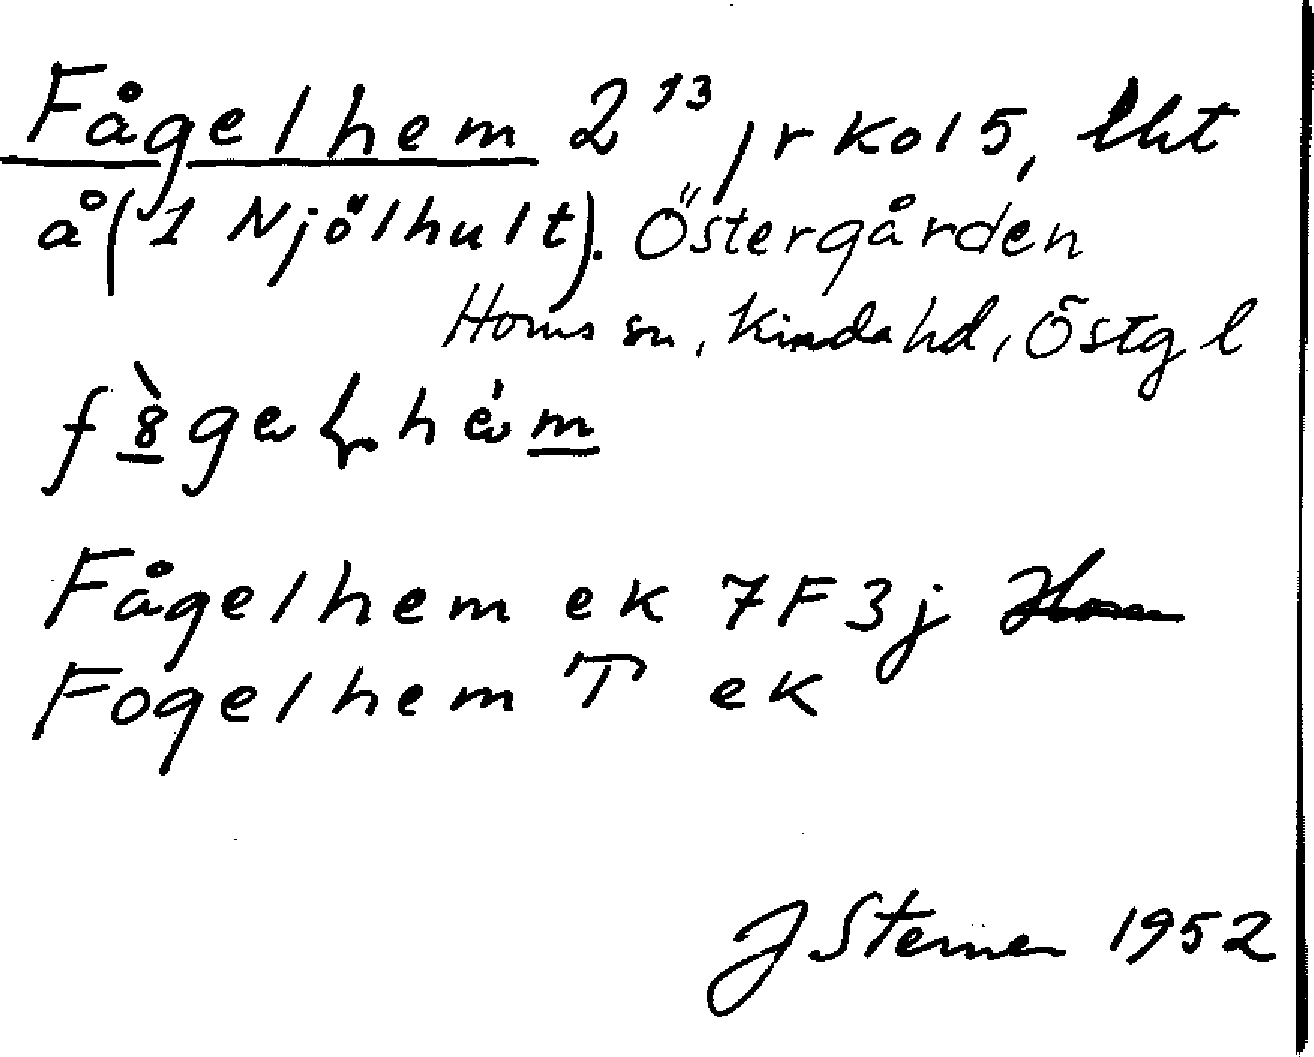 Fågelhem 2¹³ jr kol 5, lht
å (1 Njölhult). Östergården
Horns sn, Kinda hd, Östgl
Fågelhem ek 7F3j
Fogelhem T ek
J Sterner 1952